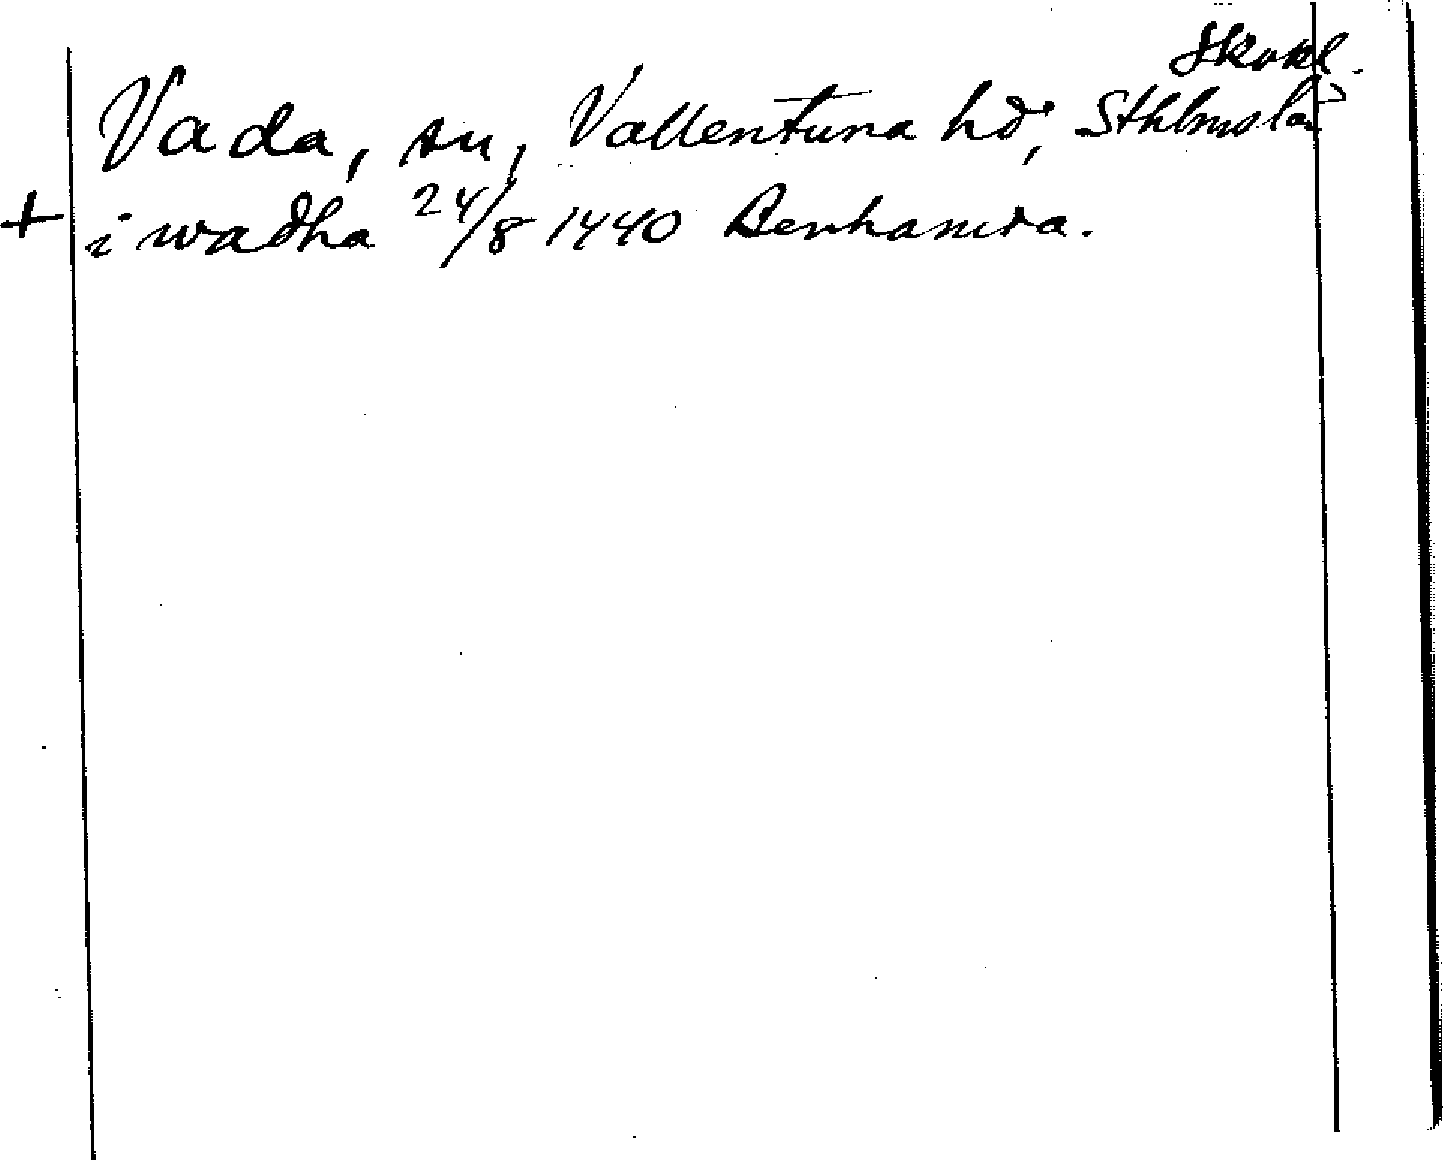 Skokl.
Vada, sn, Vallentuna hd, Sthlms län
+ i wadha 24/8 1440 Benhamra.